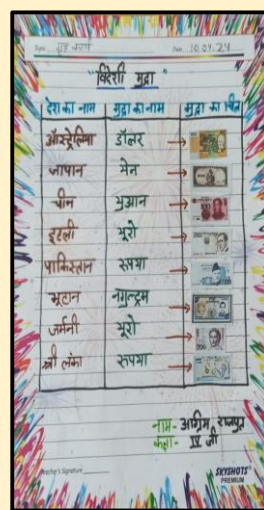 Date 10.04.24
"विदेशी मुद्रा"
देश का नाम मुद्रा का नाम मुद्रा का चित्र
ऑस्ट्रेलिया डॉलर
जापान येन
चीन युआन
इटली यूरो
पाकिस्तान रुपया
भूटान नगुल्ट्रम
जर्मनी यूरो
श्री लंका रुपया
नाम- राजपूत
कक्षा- IV जी
Teacher's Signature
SKYSHOTS
PREMIUM